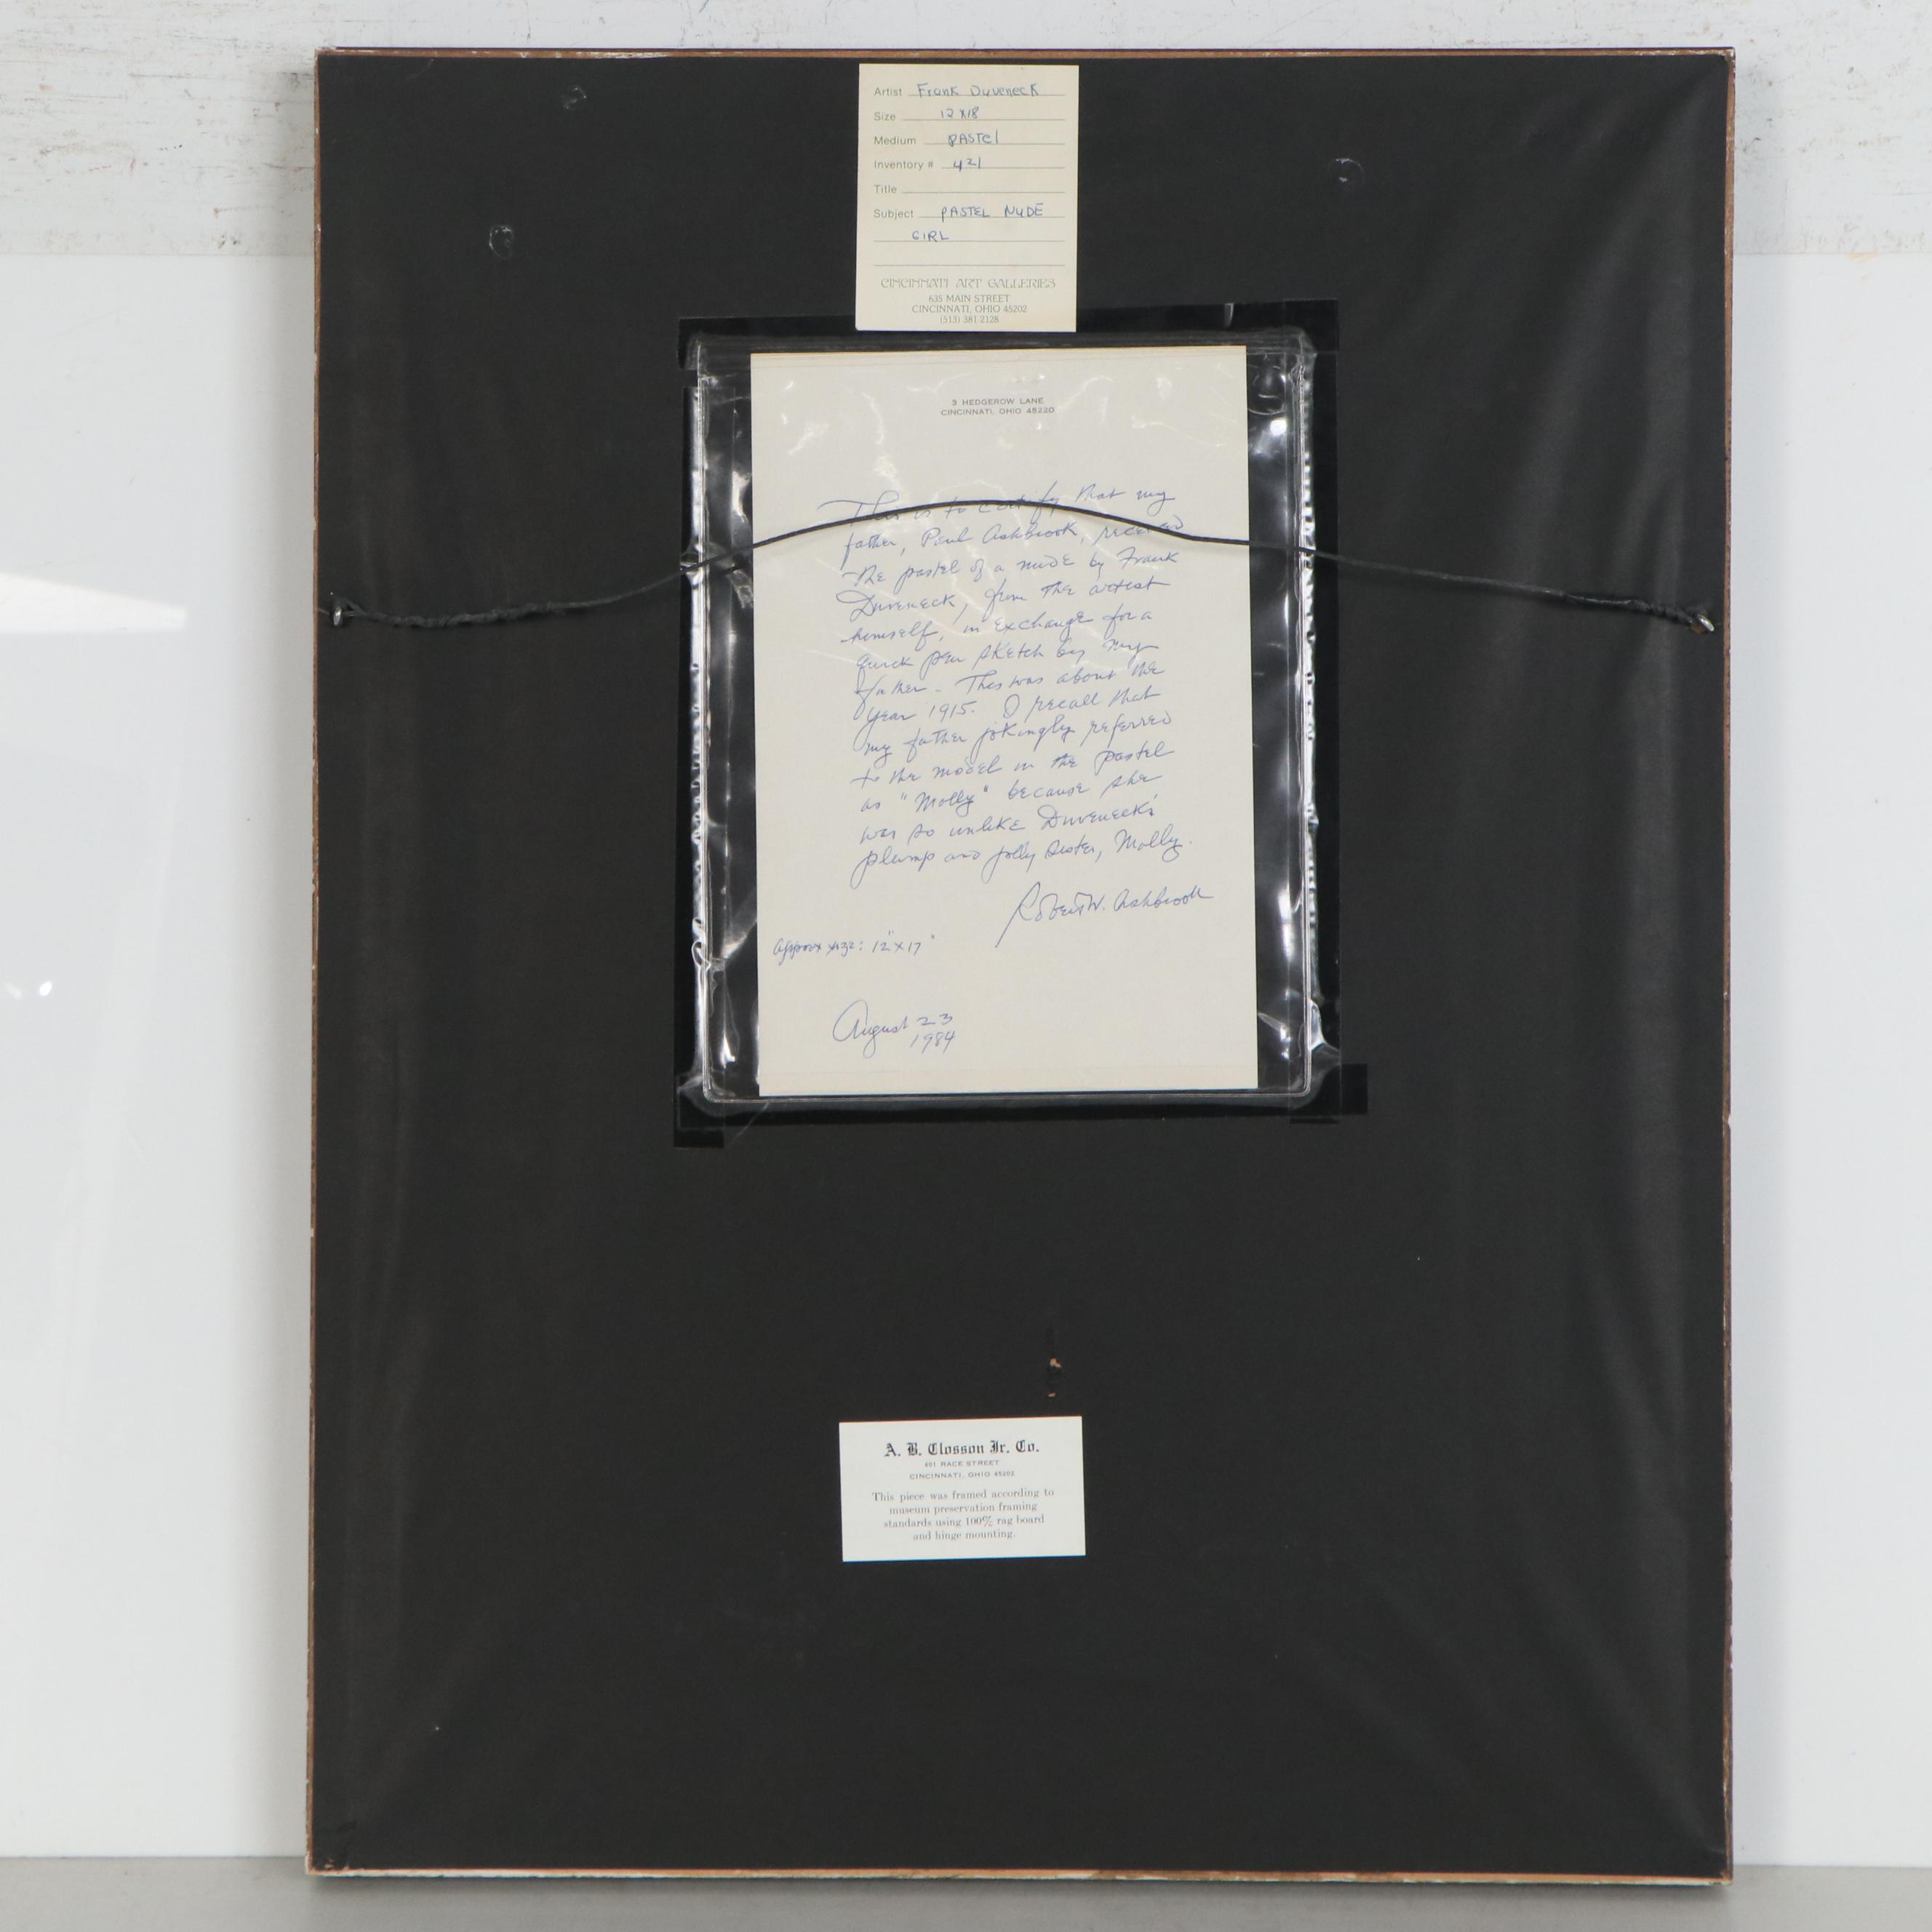 Artist Frank Duveneck
Size 12 X 18
Medium PASTEl
Inventory # 421
Title
Subject PASTEL NUDE
GIRL
CINCINNATI ART GALLERIES
635 MAIN STREET
CINCINNATI, OHIO 45202
(513) 381-2128
3 HEDGEROW LANE
CINCINNATI, OHIO 45220
This is to certify that my
father, Paul Ashbrook, received
the pastel of a nude by Frank
Duveneck, from the artist
himself, in exchange for a
quick pen sketch by my
father - This was about the
year 1915. I recall that
my father jokingly referred
to the model in the pastel
as "Molly" because she
was so unlike Duveneck's
plump and jolly sister, Molly.
Robert W. Ashbrook
Approx size: 12" X 17"
August 23
1984
A. B. Closson Jr. Co.
401 RACE STREET
CINCINNATI, OHIO 45202
This piece was framed according to
museum preservation framing
standards using 100% rag board
and hinge mounting.